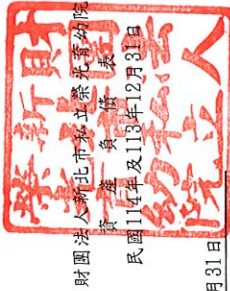 財團法人新北市私立榮光育幼院
資產負債表
民國114年及113年12月31日
月31日